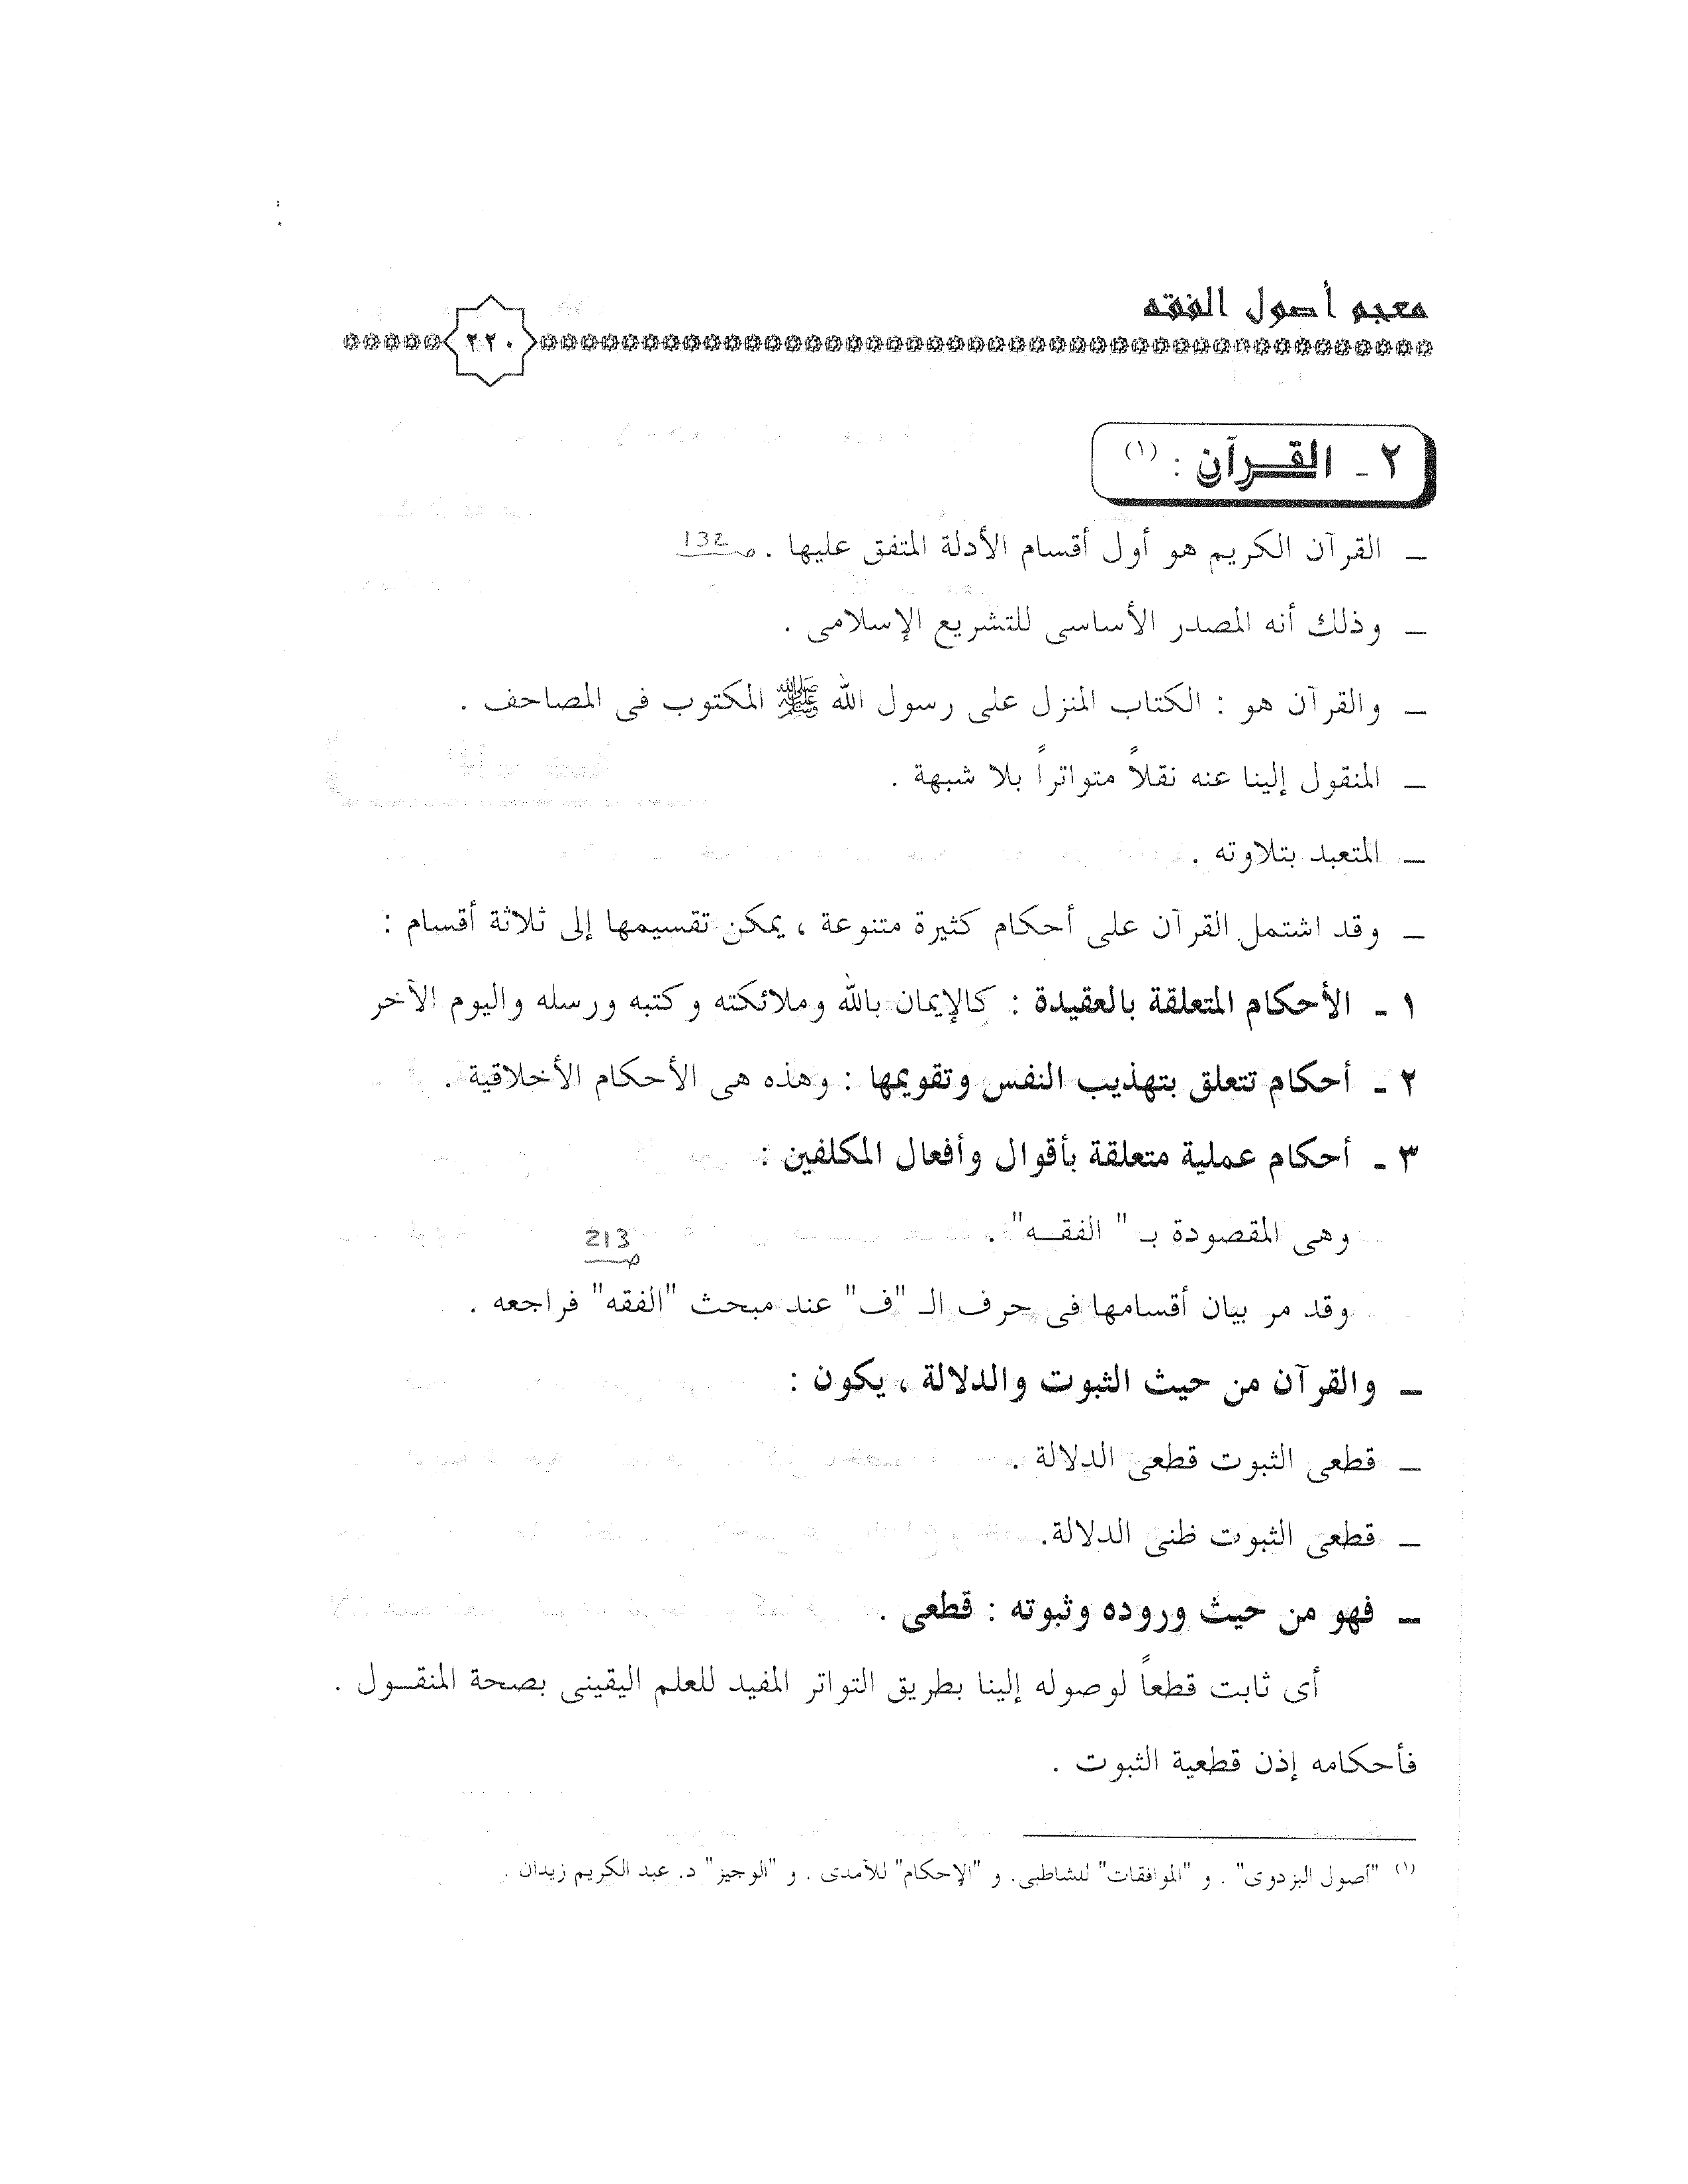 معجم أصول الفقه
٢٢٠
٢ ـ القـــرآن : (١)
ــ القرآن الكريم هو أول أقسام الأدلة المتفق عليها . صـ 132
ــ وذلك أنه المصدر الأساسى للتشريع الإسلامى .
ــ والقرآن هو : الكتاب المنزل على رسول الله ﷺ المكتوب فى المصاحف .
ــ المنقول إلينا عنه نقلاً متواتراً بلا شبهة .
ــ المتعبد بتلاوته .
ــ وقد اشتمل القرآن على أحكام كثيرة متنوعة ، يمكن تقسيمها إلى ثلاثة أقسام :
١ ـ الأحكام المتعلقة بالعقيدة : كالإيمان بالله وملائكته وكتبه ورسله واليوم الآخر
٢ ـ أحكام تتعلق بتهذيب النفس وتقويمها : وهذه هى الأحكام الأخلاقية .
٣ ـ أحكام عملية متعلقة بأقوال وأفعال المكلفين :
وهى المقصودة بـ " الفقـــه" .
213
صـ
وقد مر بيان أقسامها فى حرف الـ "ف" عند مبحث "الفقه" فراجعه .
ــ والقرآن من حيث الثبوت والدلالة ، يكون :
ــ قطعى الثبوت قطعى الدلالة .
ــ قطعى الثبوت ظنى الدلالة.
ــ فهو من حيث وروده وثبوته : قطعى .
أى ثابت قطعاً لوصوله إلينا بطريق التواتر المفيد للعلم اليقينى بصحة المنقـــول .
فأحكامه إذن قطعية الثبوت .
(١) "أصول البزدوى" . و "الموافقات" للشاطبى. و "الإحكام" للآمدى . و "الوجيز" د. عبد الكريم زيدان .